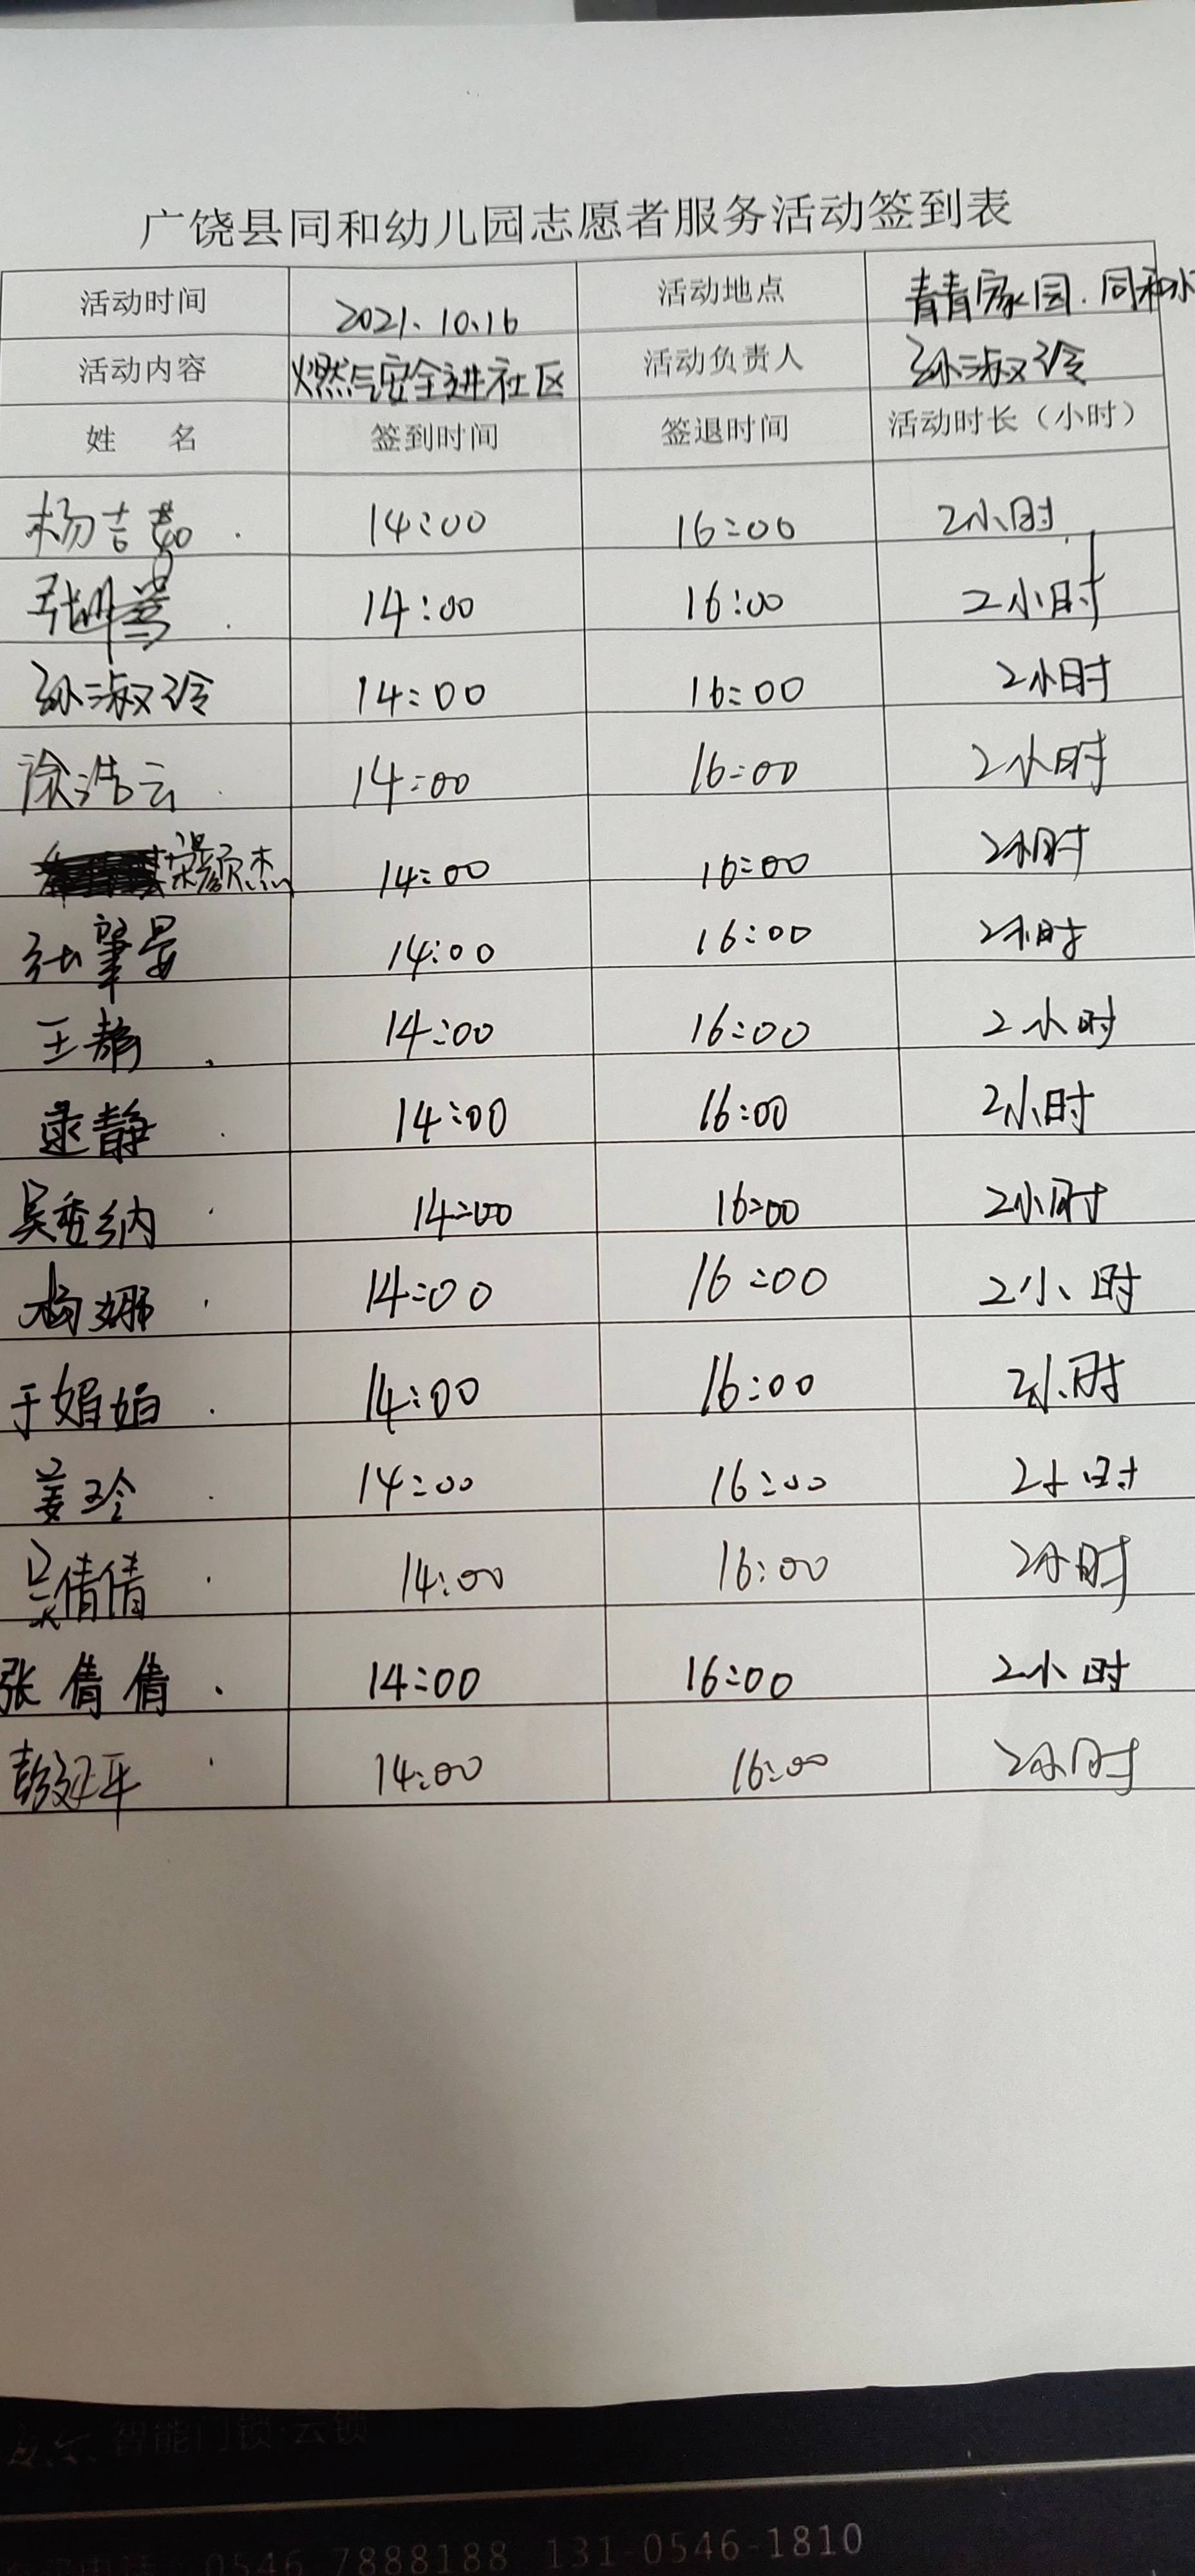 广饶县同和幼儿园志愿者服务活动签到表
活动时间 2021.10.16 活动地点 青青家园.同和小
活动内容 燃气安全进社区 活动负责人 孙淑玲
姓 名 签到时间 签退时间 活动时长（小时）
杨吉茹 14:00 16:00 2小时
张 14:00 16:00 2小时
孙淑玲 14:00 16:00 2小时
徐浩云 14:00 16:00 2小时
梁颜杰 14:00 16:00 2小时
张肇晏 14:00 16:00 2小时
王静 14:00 16:00 2小时
逯静 14:00 16:00 2小时
吴秀纳 14:00 16:00 2小时
杨娜 14:00 16:00 2小时
于娟娟 14:00 16:00 2小时
姜玲 14:00 16:00 2小时
吴倩倩 14:00 16:00 2小时
张倩倩 14:00 16:00 2小时
彭延平 14:00 16:00 2小时
智能门锁 云锁
0546 7888188 131-0546-1810